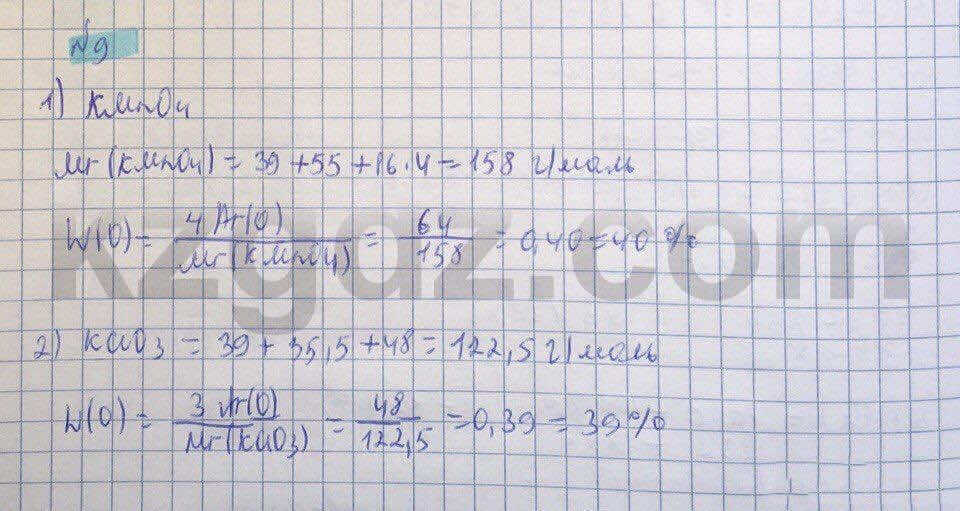 №9
1) KMnO4
Mr(KMnO4) = 39+55+16·4=158 г/моль
W(O)= 4 Ar(O) / Mr(KMnO4) = 64 / 158 = 0,40=40%
kzgdz.com
2) KClO3 = 39+35,5+48=122,5 г/моль
W(O) = 3 Ar(O) / Mr(KClO3) = 48 / 122,5 =0,39=39%